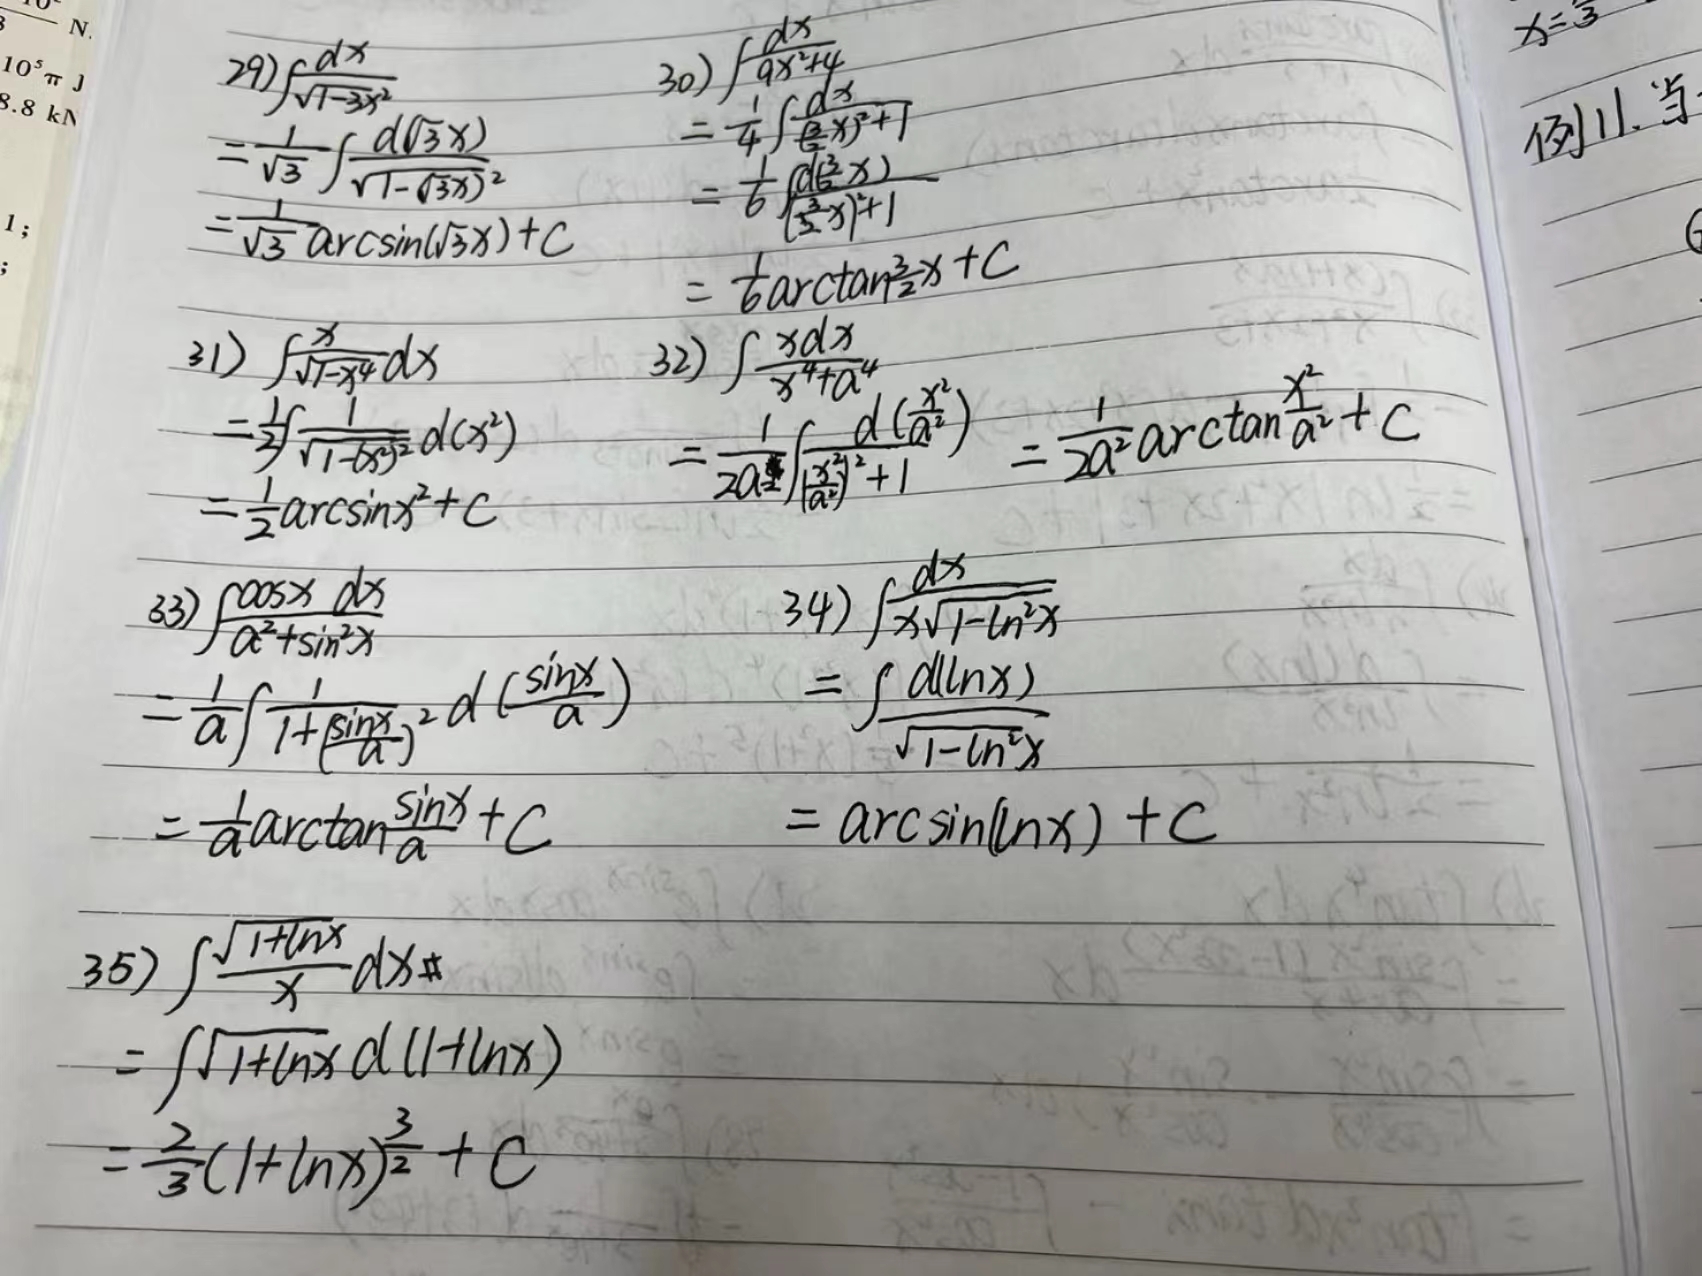 N.
10⁵π J
8.8 kN
1;
;
29) ∫ dx/√(1-3x²)
= 1/√3 ∫ d(√3x)/√(1-(√3x)²)
= 1/√3 arcsin(√3x)+C
30) ∫ dx/(9x²+4)
= 1/4 ∫ dx/((3/2 x)²+1)
= 1/6 ∫ d(3/2 x)/((3/2 x)²+1)
= 1/6 arctan 3/2 x + C
31) ∫ x/√(1-x⁴) dx
= 1/2 ∫ 1/√(1-(x²)²) d(x²)
= 1/2 arcsinx² + C
32) ∫ xdx/(x⁴+a⁴)
= 1/(2a²) ∫ d(x²/a²)/((x²/a²)²+1) = 1/(2a²) arctan x²/a² + C
33) ∫ cosx dx/(a²+sin²x)
= 1/a ∫ 1/(1+(sinx/a)²) d(sinx/a)
= 1/a arctan sinx/a + C
34) ∫ dx/(x√(1-ln²x))
= ∫ d(lnx)/√(1-ln²x)
= arcsin(lnx) + C
35) ∫ √(1+lnx)/x dx
= ∫ √(1+lnx) d(1+lnx)
= 2/3 (1+lnx)^(3/2) + C
例11. 当